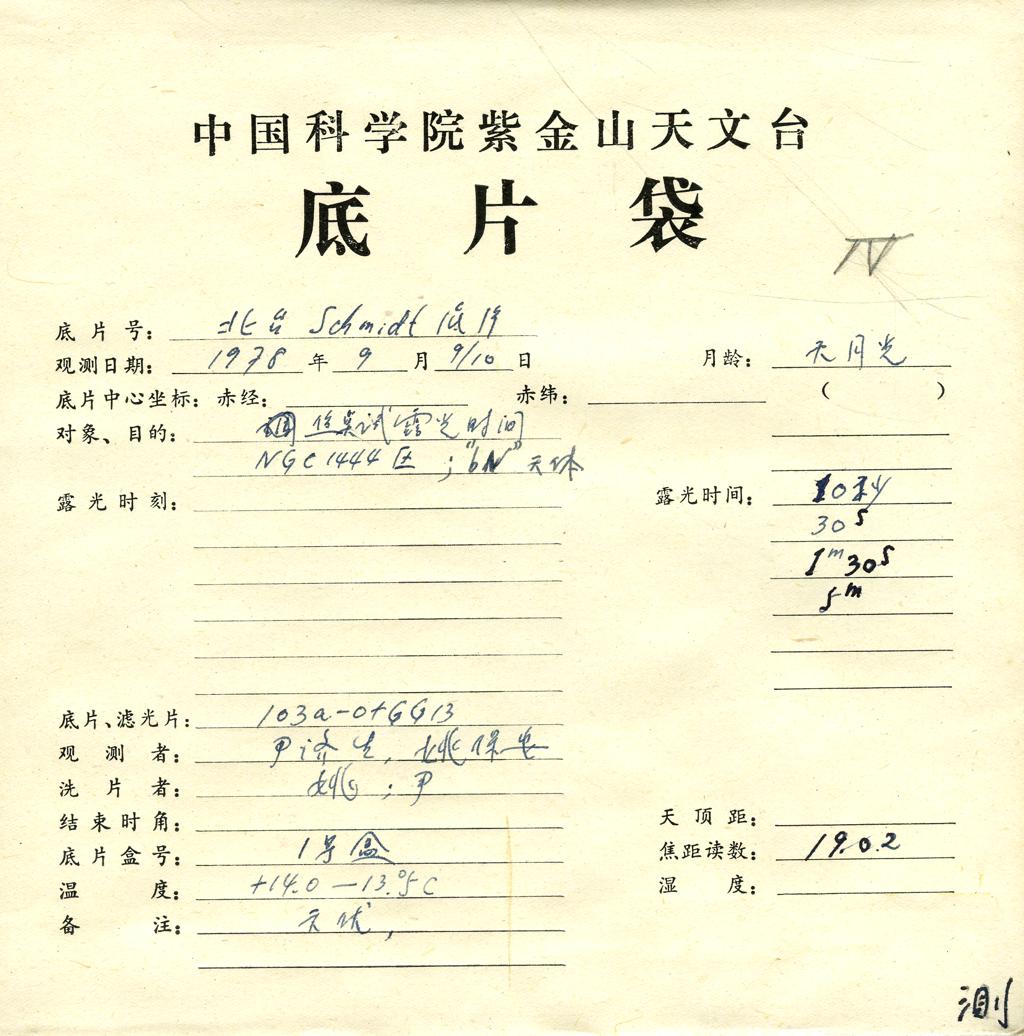 中国科学院紫金山天文台
底片袋
IV
底片号: 北台 Schmidt 底片
观测日期: 1978 年 9 月 9/10 日 月龄: 无月光
底片中心坐标: 赤经: 赤纬: ( )
对象、目的: 试露光时间
NGC 1444 区 ; "bN" 天体
露光时刻: 露光时间: 10秒
30s
1m30s
5m
底片、滤光片: 103a-O+GG13
观测者: 尹济生, 姚保安
洗片者: 姚; 尹
结束时角: 天顶距:
底片盒号: 1号盒 焦距读数: 19.0.2
温度: +14.0 — 13.°5C 湿度:
备注:
测